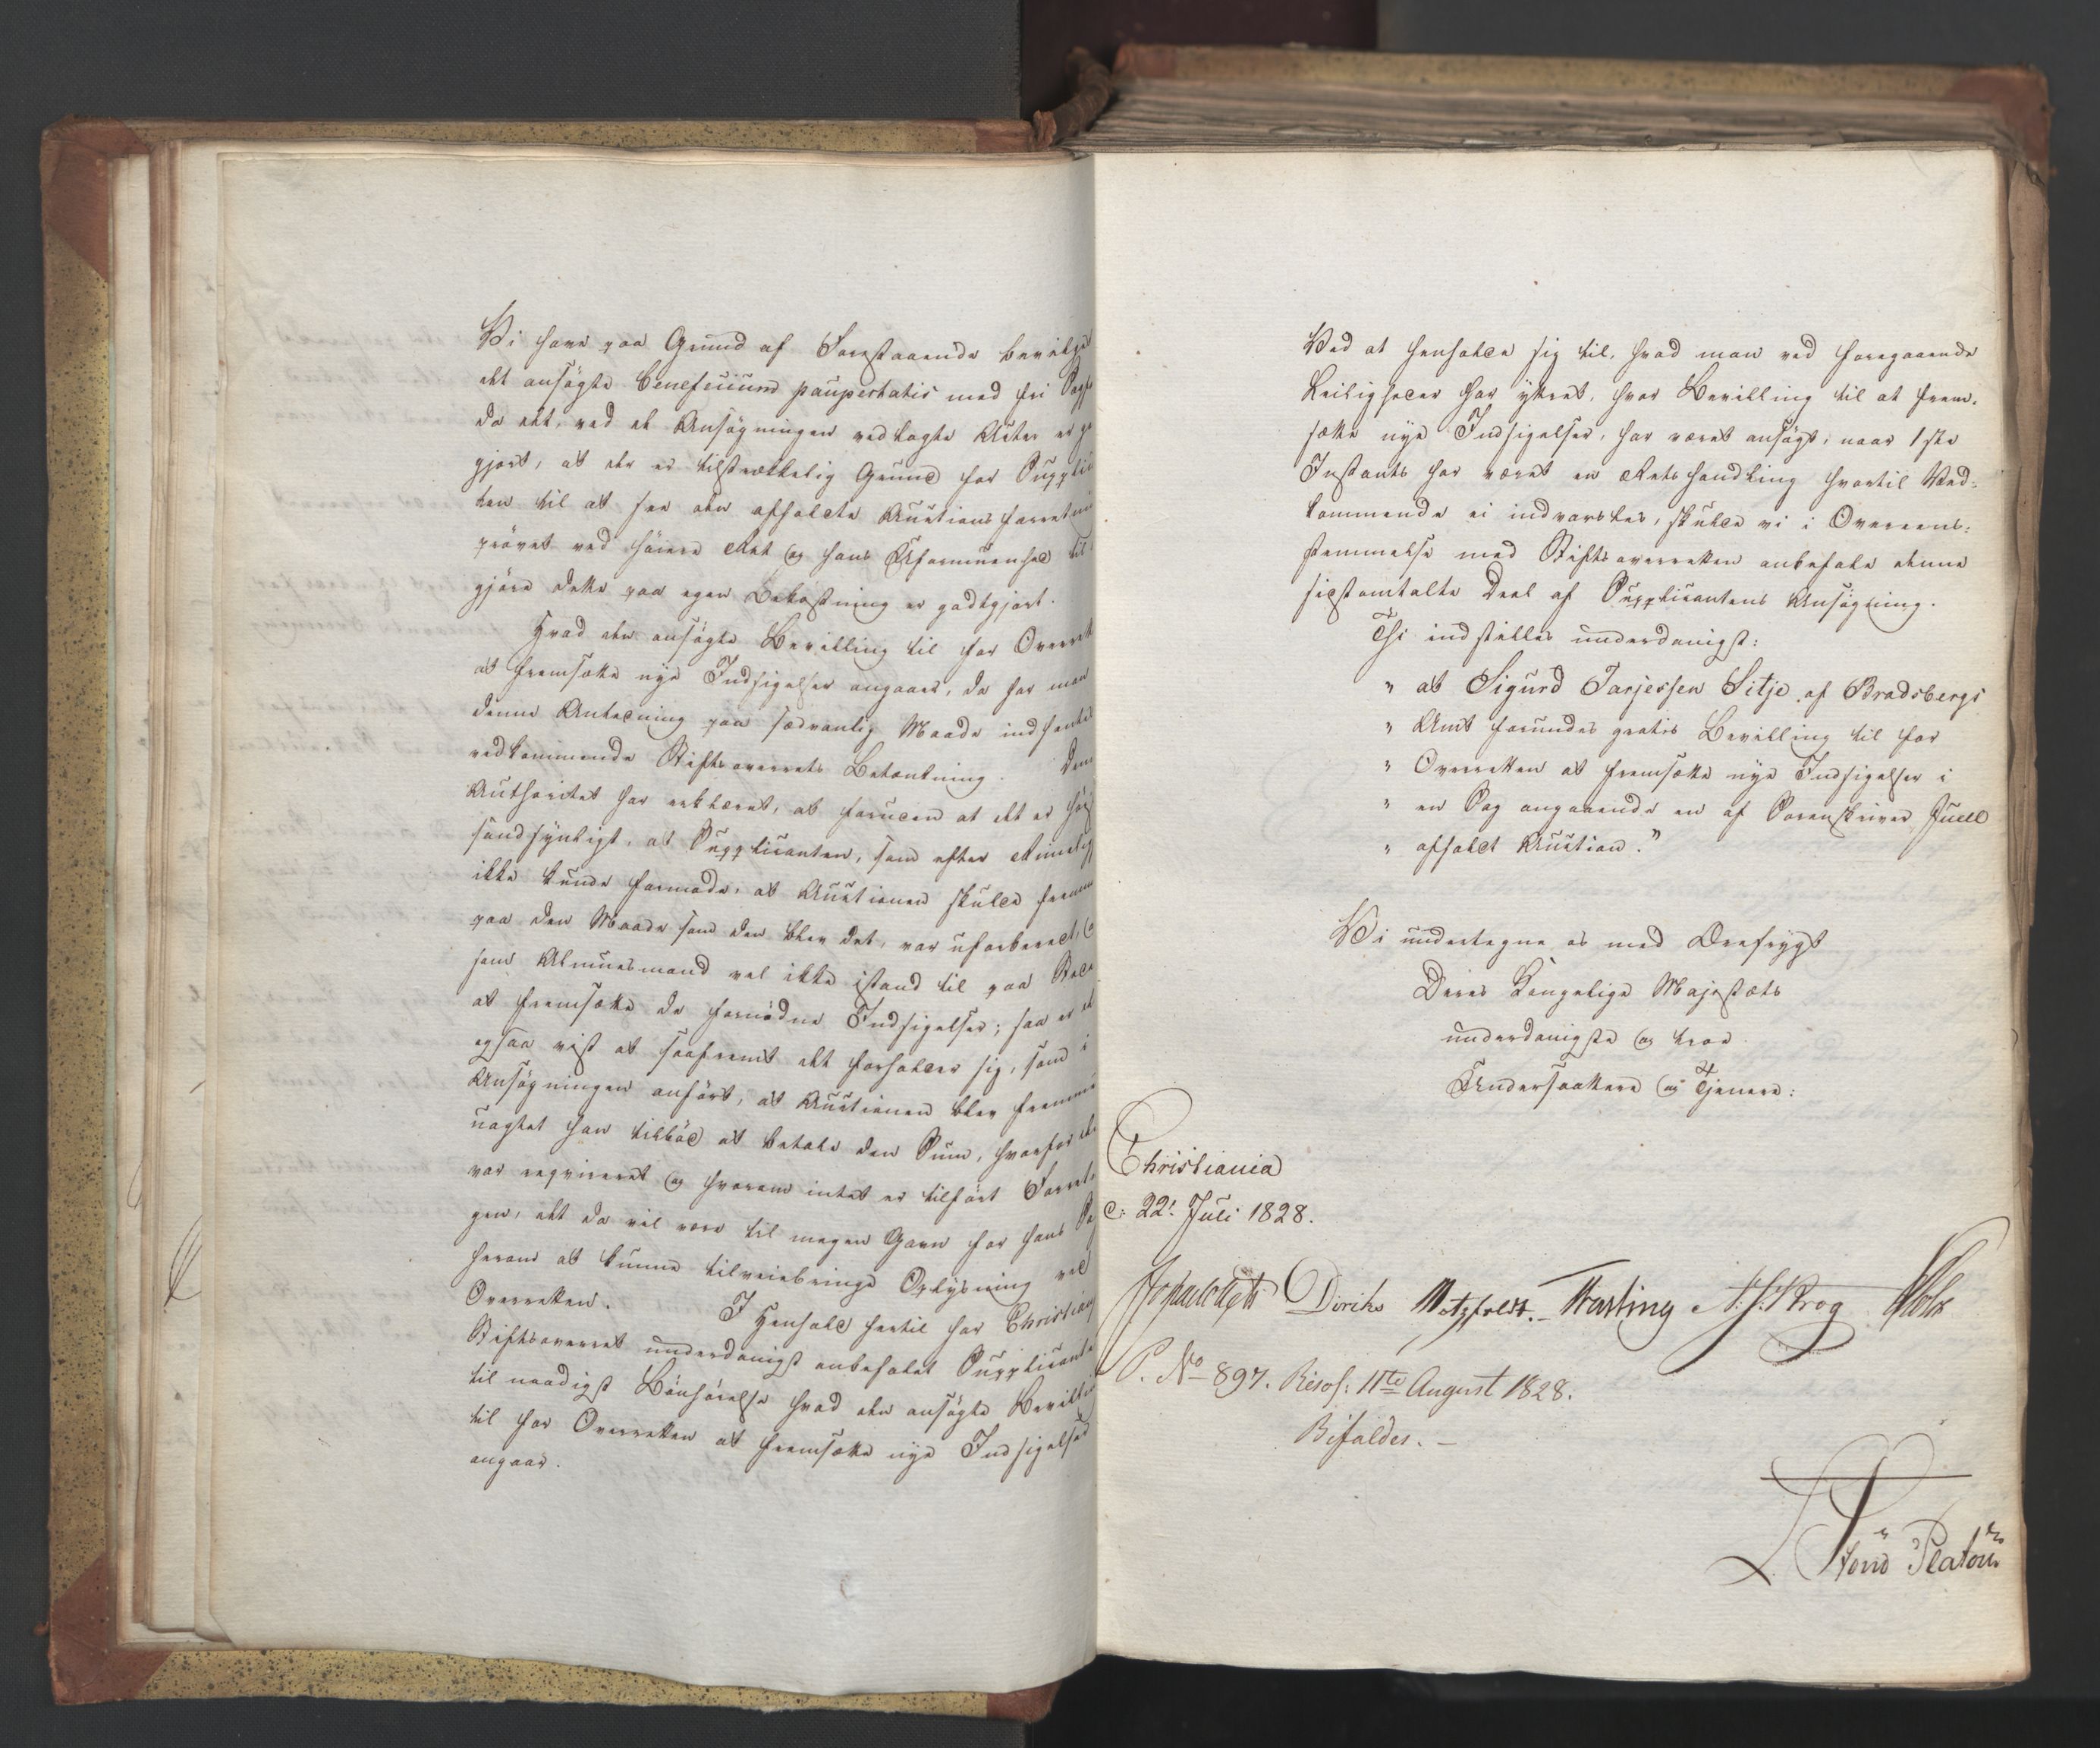 Vi have paa Grund af Forestaaende bevilget
det ansøgte beneficium paupertatis med fri Sagf
da det, ved de Ansøgningen vedlagte Acter er go
gjort, at der er tilstrækkelig Grund for Supplic
ten til at see den afholdte Auctionsforretni
prøvet ved høiere Ret og hans Uformuenhed til
gjøre dette paa egen Bekostning er godtgjort.
Hvad den ansøgte Bevilling til for Overret
at fremsætte nye Indsigelser angaaer, da har man
denne Anledning paa sædvanlig Maade indhentet
vedkommende Stiftsoverrets Betænkning. Denne
Authoritet har erklæret, at foruden at det er høist
sandsynligt, at Supplicanten, som efter Rimelig
ikke kunde formode, at Auctionen skulde fremme
paa den Maade som den blev det, var uforberedt, og
som Almuesmand vel ikke istand til paa Stede
at fremsætte de fornødne Indsigelser; saa er det
ogsaa vist at saafremt det forholder sig, som i
Ansøgningen anført, at Auctionen blev fremmet
uagtet han tilbød at betale den Sum, hvorfor den
var reqvireret og hvorom intet er tilført Forretn
gen, det da vil være til megen Gavn for hans Sag
herom at kunne tilveiebringe Oplysning ved
Overretten.
I Henhold hertil har Christians
Stiftsoverret underdanigst anbefalet Supplicante
til naadigst Bønhørelse hvad den ansøgte Bevilli
til for Overretten at fremsætte nye Indsigelser
angaar.
Ved at henholde sig til, hvad man ved foregaaende
Leiligheder har yttret, hvor Bevilling til at frem-
sætte nye Indsigelser, har været ansøgt, naar 1ste
Instants har været en Retshandling hvortil Ved-
kommende ei indvarsles, skulde vi i Overeens-
stemmelse med Stiftsoverretten anbefale denne
sidstomtalte Deel af Supplicantens Ansøgning.
Thi indstilles underdanigst:
" at Sigurd Tarjessen Sitje af Bradsbergs
" Amt forundes gratis Bevilling til for
" Overretten at fremsætte nye Indsigelser i
" en Sag angaaende en af Sorenskriver Juell
" afholdt Auction."
Vi undertegne os med Ærefrygt
Deres Kongelige Majestæts
underdanigste og troe
Undersaattere og Tjenere:
Christiania
d: 22! Juli 1828.
Diriks Motzfeldt. Krog Holst
P. No 897. Resol: 11te August 1828.
Bifaldes. —
Platou